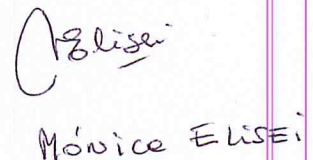 Elisei
Mónica ELISEi